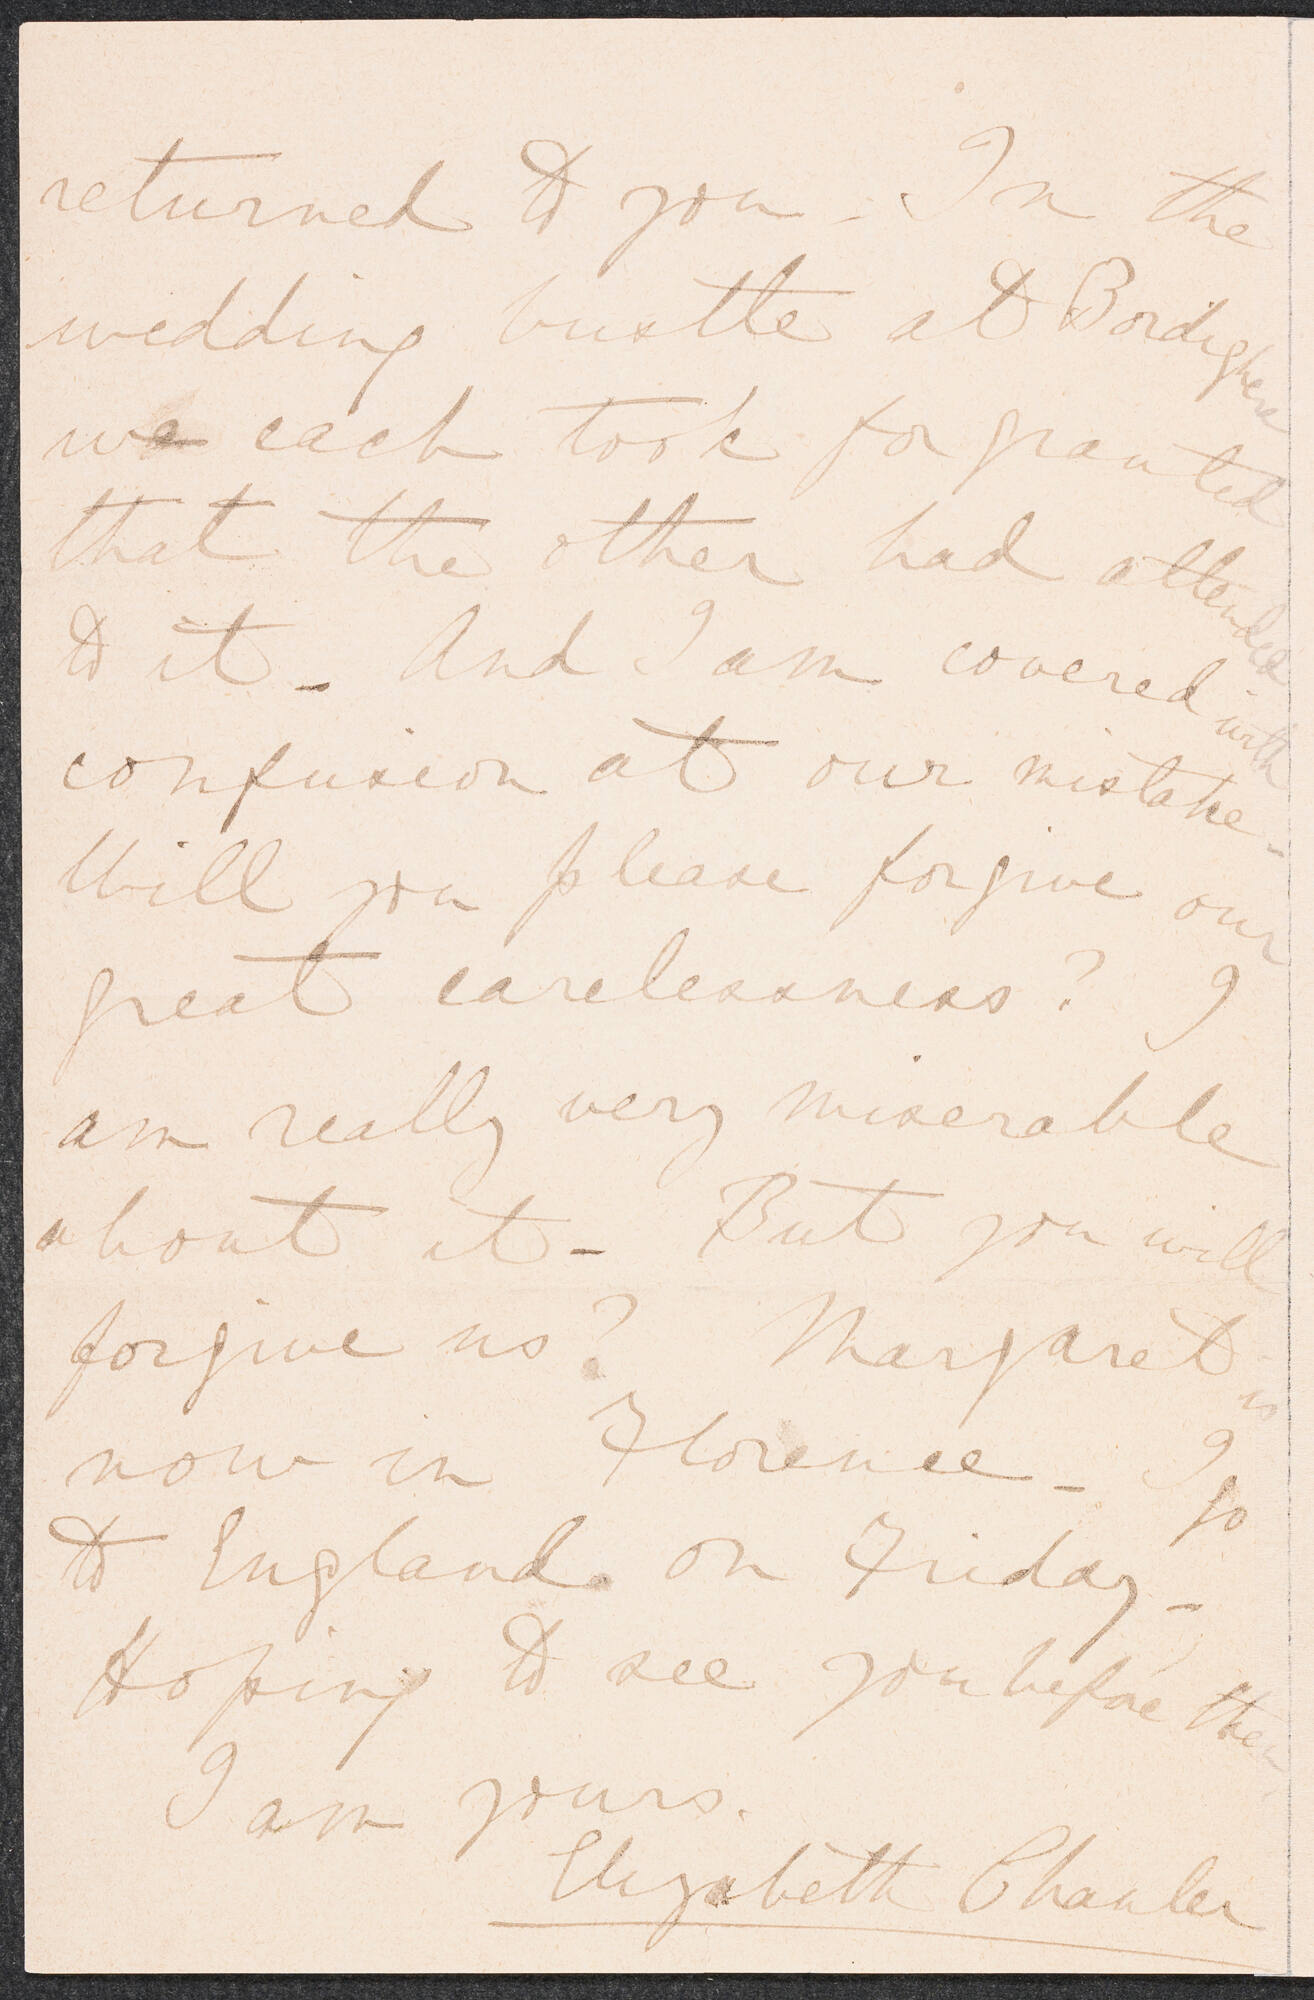 returned to you - In the
wedding bustle at Bordighera
we each took for granted
that the other had attended
to it - And I am covered with
confusion at our mistake -
Will you please forgive our
great carelessness? I
am really very miserable
about it - But you will
forgive us? Margaret is
now in Florence - I go
to England on Friday -
Hoping to see you before then,
I am yours.
Elizabeth Chanler